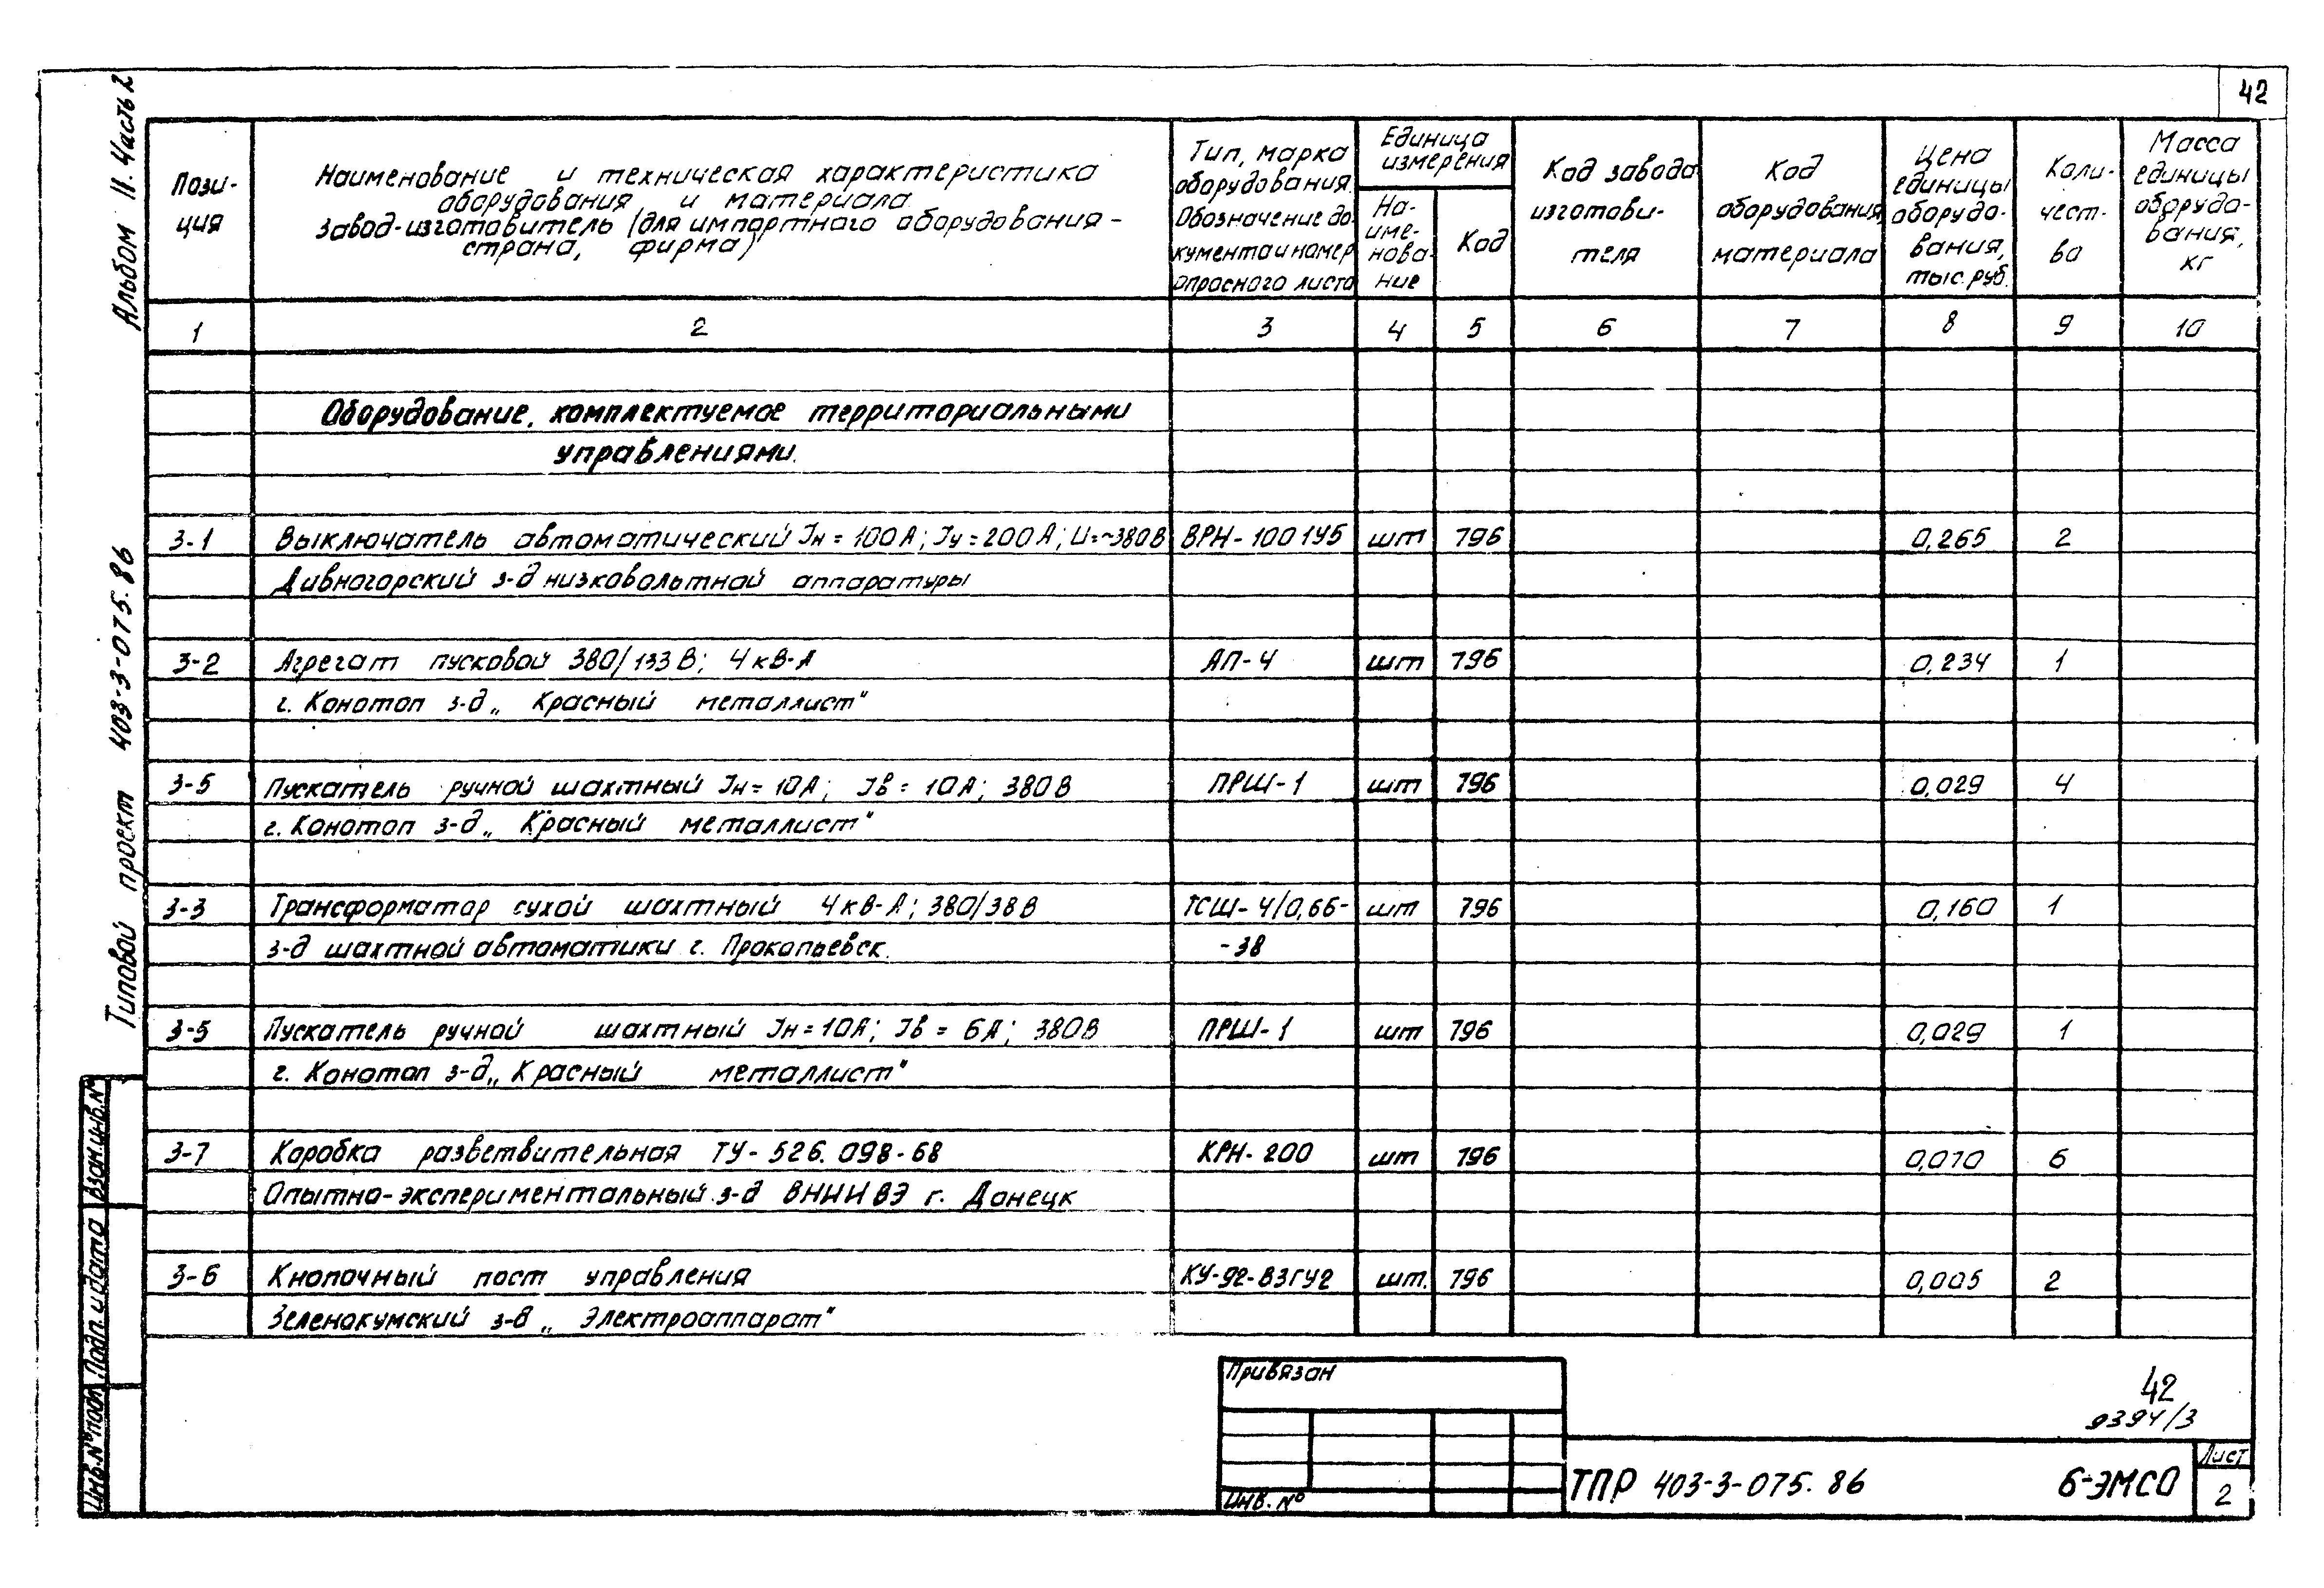 42
Альбом II. Часть 2
Типовой проект 403-3-075.86
Пози-
ция
Наименование и техническая характеристика
оборудования и материала.
Завод-изготовитель (для импортного оборудования -
страна, фирма)
Тип, марка
оборудования.
Обозначение до-
кумента и номер
опросного листа
Единица
измерения
На-
име-
нова-
ние
Код
Код завода
изготови-
теля
Код
оборудования,
материала
Цена
единицы
оборудо-
вания,
тыс. руб.
Коли-
чест-
во
Масса
единицы
оборудо-
вания,
кг
1 2 3 4 5 6 7 8 9 10
Оборудование, комплектуемое территориальными
управлениями.
3-1 Выключатель автоматический Jн = 100А; Jу = 200А; U=~380В ВРН-100 1У5 шт 796 0,265 2
Дивногорский з-д низковольтной аппаратуры
3-2 Агрегат пусковой 380/133 В; 4 кВ-А АП-4 шт 796 0,234 1
г. Конотоп з-д „Красный металлист"
3-5 Пускатель ручной шахтный Jн = 10А; Jв = 10А; 380В ПРШ-1 шт 796 0,029 4
г. Конотоп з-д „Красный металлист"
3-3 Трансформатор сухой шахтный 4 кВ-А; 380/38 В ТСШ-4/0,66- шт 796 0,160 1
з-д шахтной автоматики г. Прокопьевск. -38
3-5 Пускатель ручной шахтный Jн = 10А; Jв = 6А; 380В ПРШ-1 шт 796 0,029 1
г. Конотоп з-д „Красный металлист"
3-7 Коробка разветвительная ТУ-526.098-68 КРН-200 шт 796 0,010 6
Опытно-экспериментальный з-д ВНИИВЭ г. Донецк
3-6 Кнопочный пост управления КУ-92-ВЗГУ2 шт. 796 0,005 2
Зеленокумский з-д „Электроаппарат"
Взам.инв.№
Подп. и дата
Инв.№ подл.
Привязан
Инв. №
42
9394/3
ТПР 403-3-075.86 6-ЭМСО
Лист
2